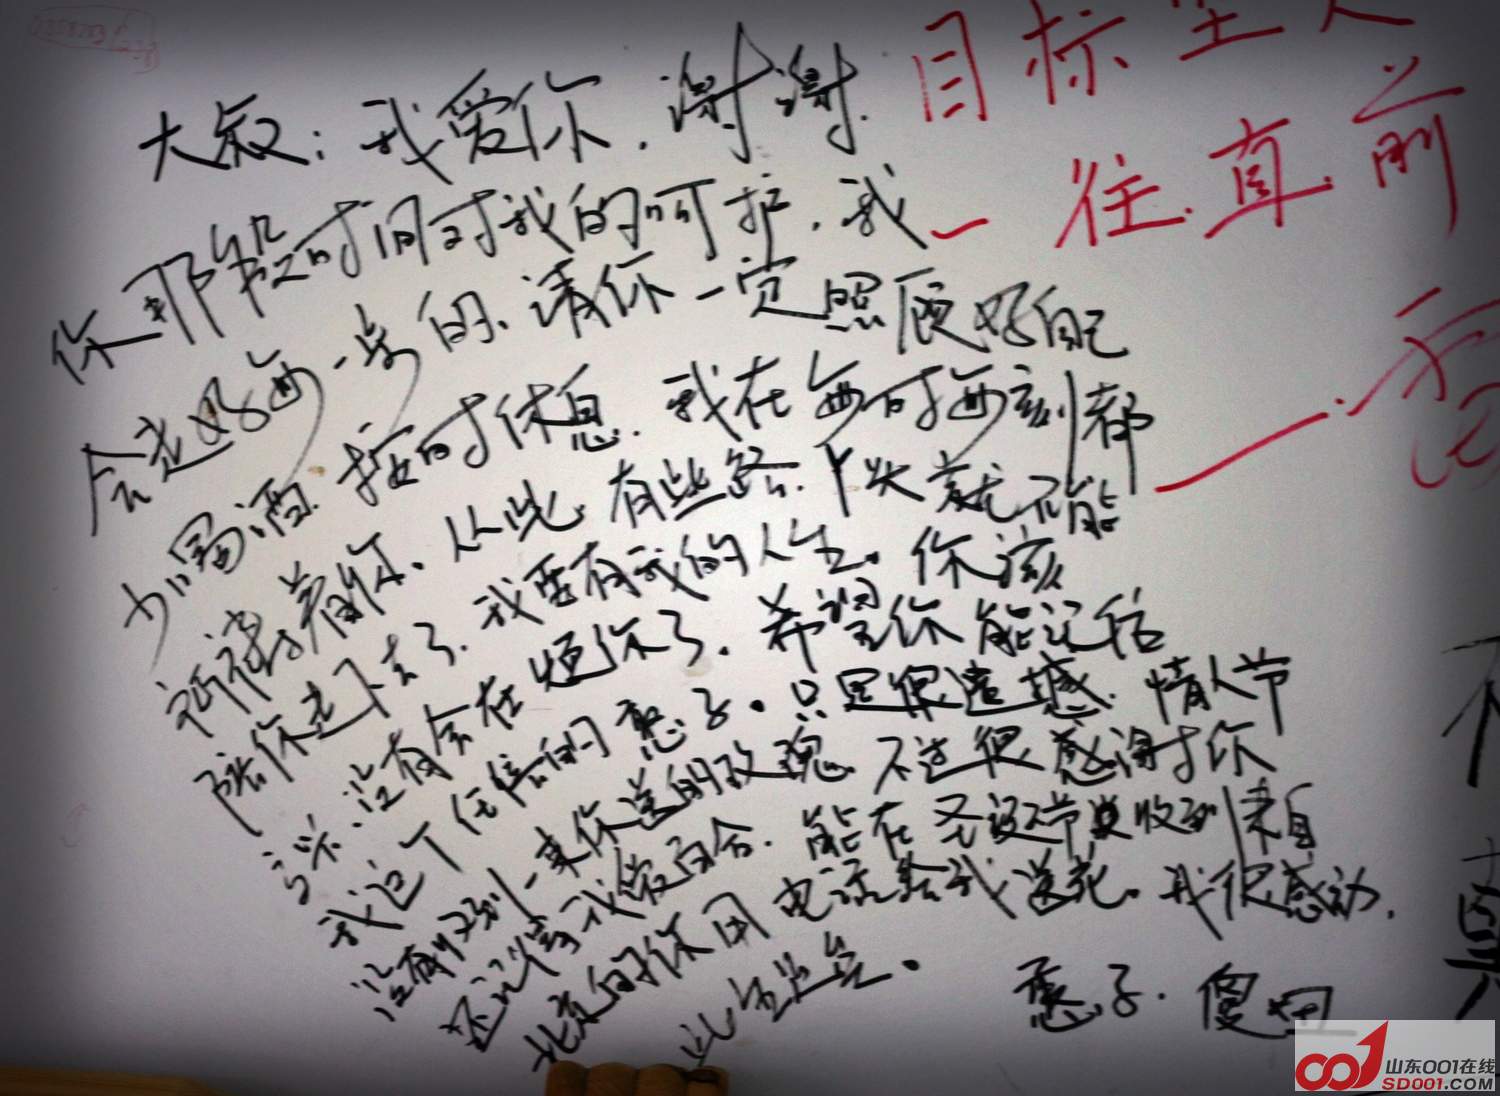 大叔：我爱你．谢谢．
你那段时间对我的呵护．我
会走好每一步的、请你一定照顾好自己
少喝酒．按时休息．我在每时每刻都
祈祷着你、从此．有些路．丫头就不能
陪你走下去了．我要有我的人生．你该
没有会在烦你了．希望你能记住
我这个任性的憨子．只是很遗憾．情人节
没有收到一束你送的玫瑰．不过很感谢你
还记得我爱百合．能在圣诞节里收到来自
北京的你用电话给我送花．我很感动．
此生
憨子．傻
目标
一往直前
不
山东001在线
SD001.COM